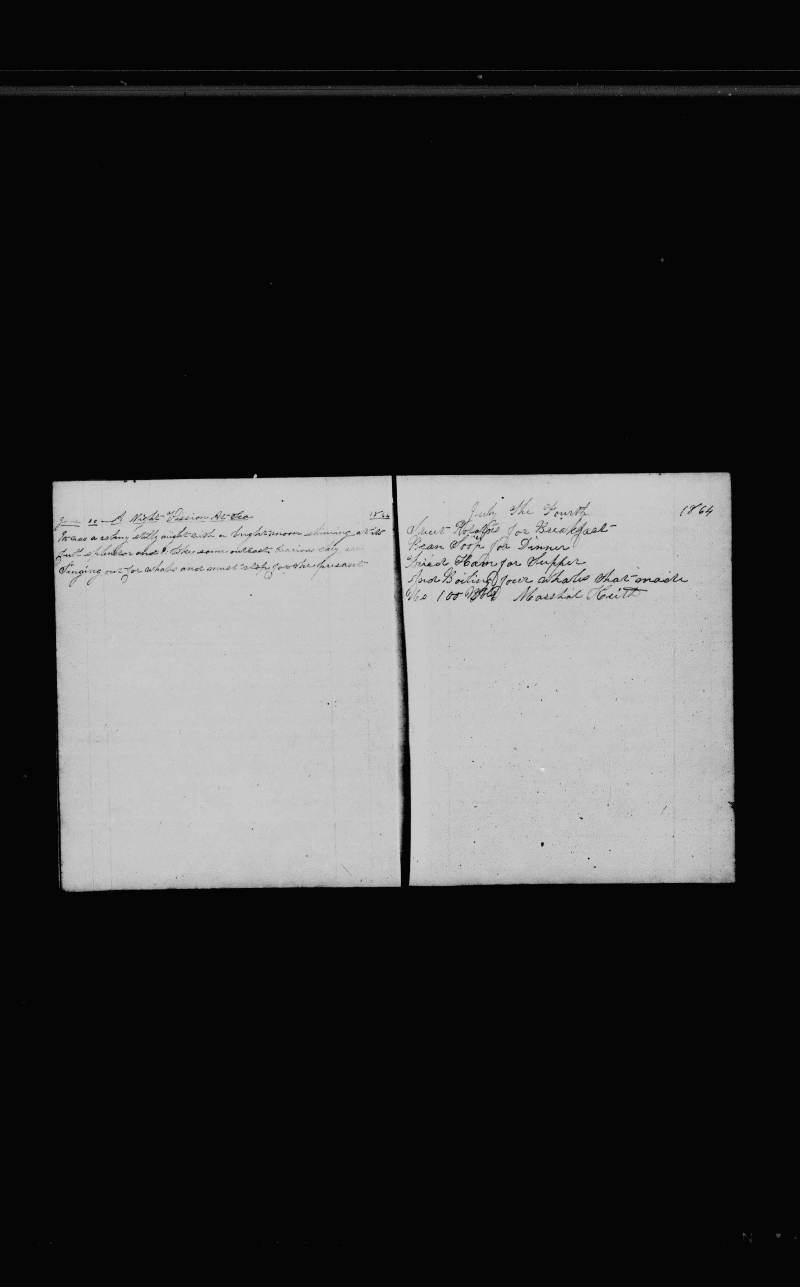 June 10 A Night Vission At Sea 1864
It was a calm still night with a bright moon shining at its
full splendor and I like some outcast
Singing out for whale and must stop for the presant
July The Fourth 1864
Sweet Potatos for Breakfast
Bean Soop for Dinner
Fried Ham for Supper
And Boiling four whales that made
Us 100 Bbls Marshal Keith